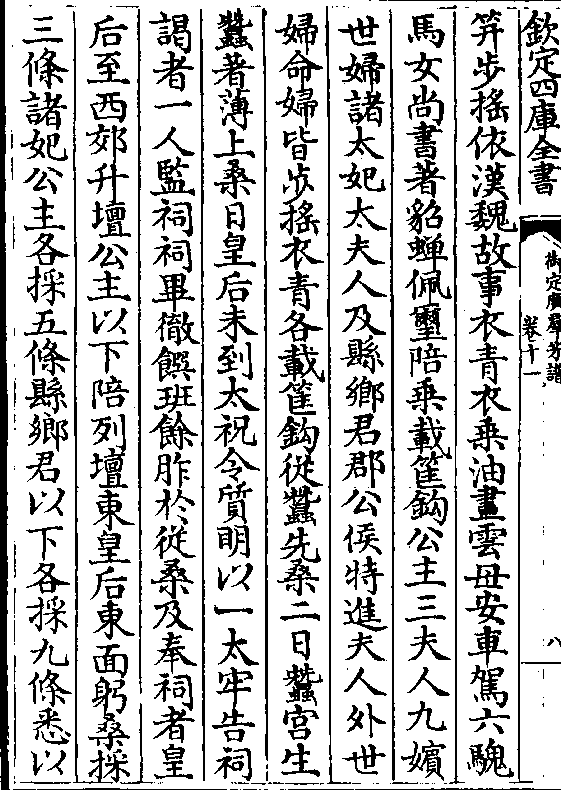 欽定四庫全書
御定廣羣芳譜
卷十一
八
笄步搖依漢魏故事衣青衣乘油畫雲母安車駕六騩
馬女尚書著貂蟬佩璽陪乘載筐鈎公主三夫人九嬪
世婦諸太妃太夫人及縣鄉君郡公侯特進夫人外世
婦命婦皆步搖衣青各載筐鈎從蠶先桑二日蠶宫生
蠶著薄上桑日皇后未到太祝令質明以一太牢告祠
謁者一人監祠祠畢徹饌班餘胙於從桑及奉祠者皇
后至西郊升壇公主以下陪列壇東皇后東面躬桑採
三條諸妃公主各採五條縣鄉君以下各採九條悉以